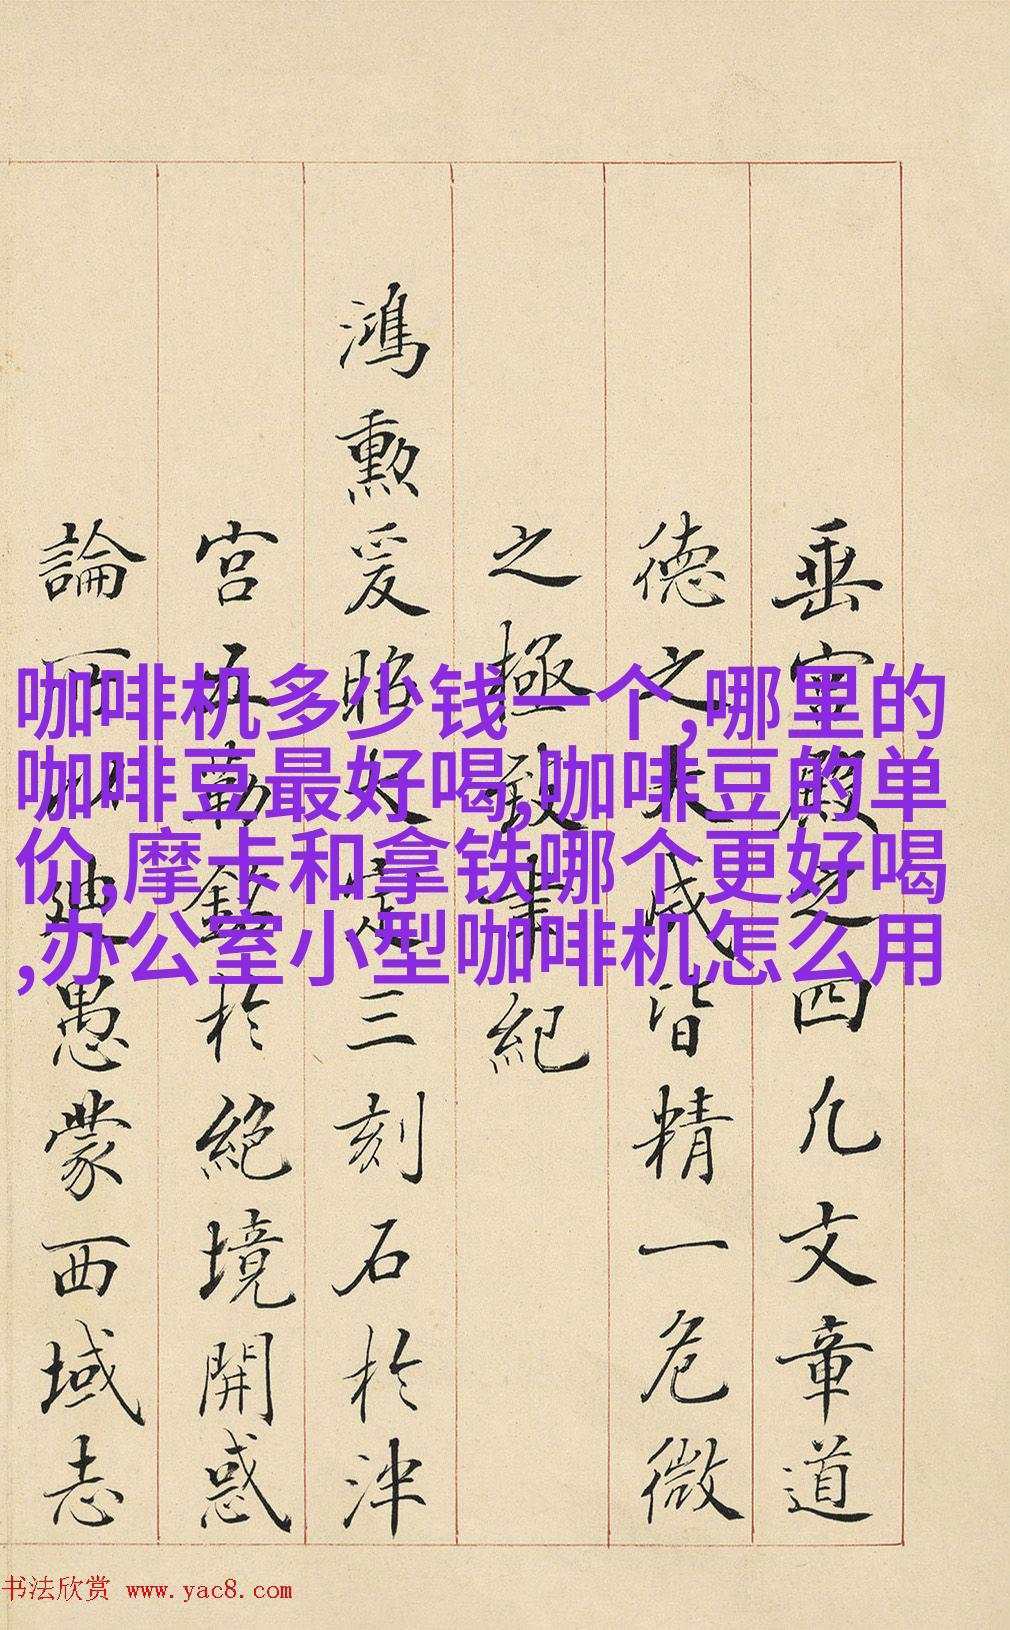 咖啡机多少钱一个,哪里的
咖啡豆最好喝,咖啡豆的单
价,摩卡和拿铁哪个更好喝
,办公室小型咖啡机怎么用
垂 殿之四凡文章道
德之大成皆精一危微
之極致 紀
鴻勳爰昭 三刻石於津
宫五勒 於絶境開惑
論 愚蒙西域志
书法欣赏 www.yac8.com